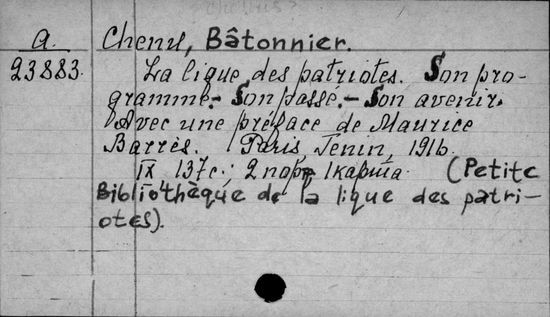 a. Chenu, Bâtonnier.
23883. La ligue des patriotes. Son pro-
gramme.- Son passé.- Son avenir.
Avec une préface de Maurice
Barrès. Paris Tenin, 1916.
IX 137c.; 2 портр 1карта. (Petite
Bibliothèque de la ligue des patri-
otes).